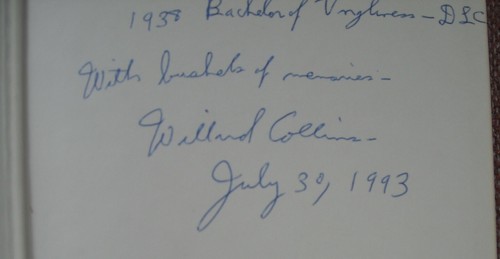 1938 Bachelor of Ugliness - DLC
With bushels of memories -
Willard Collins -
July 30, 1993